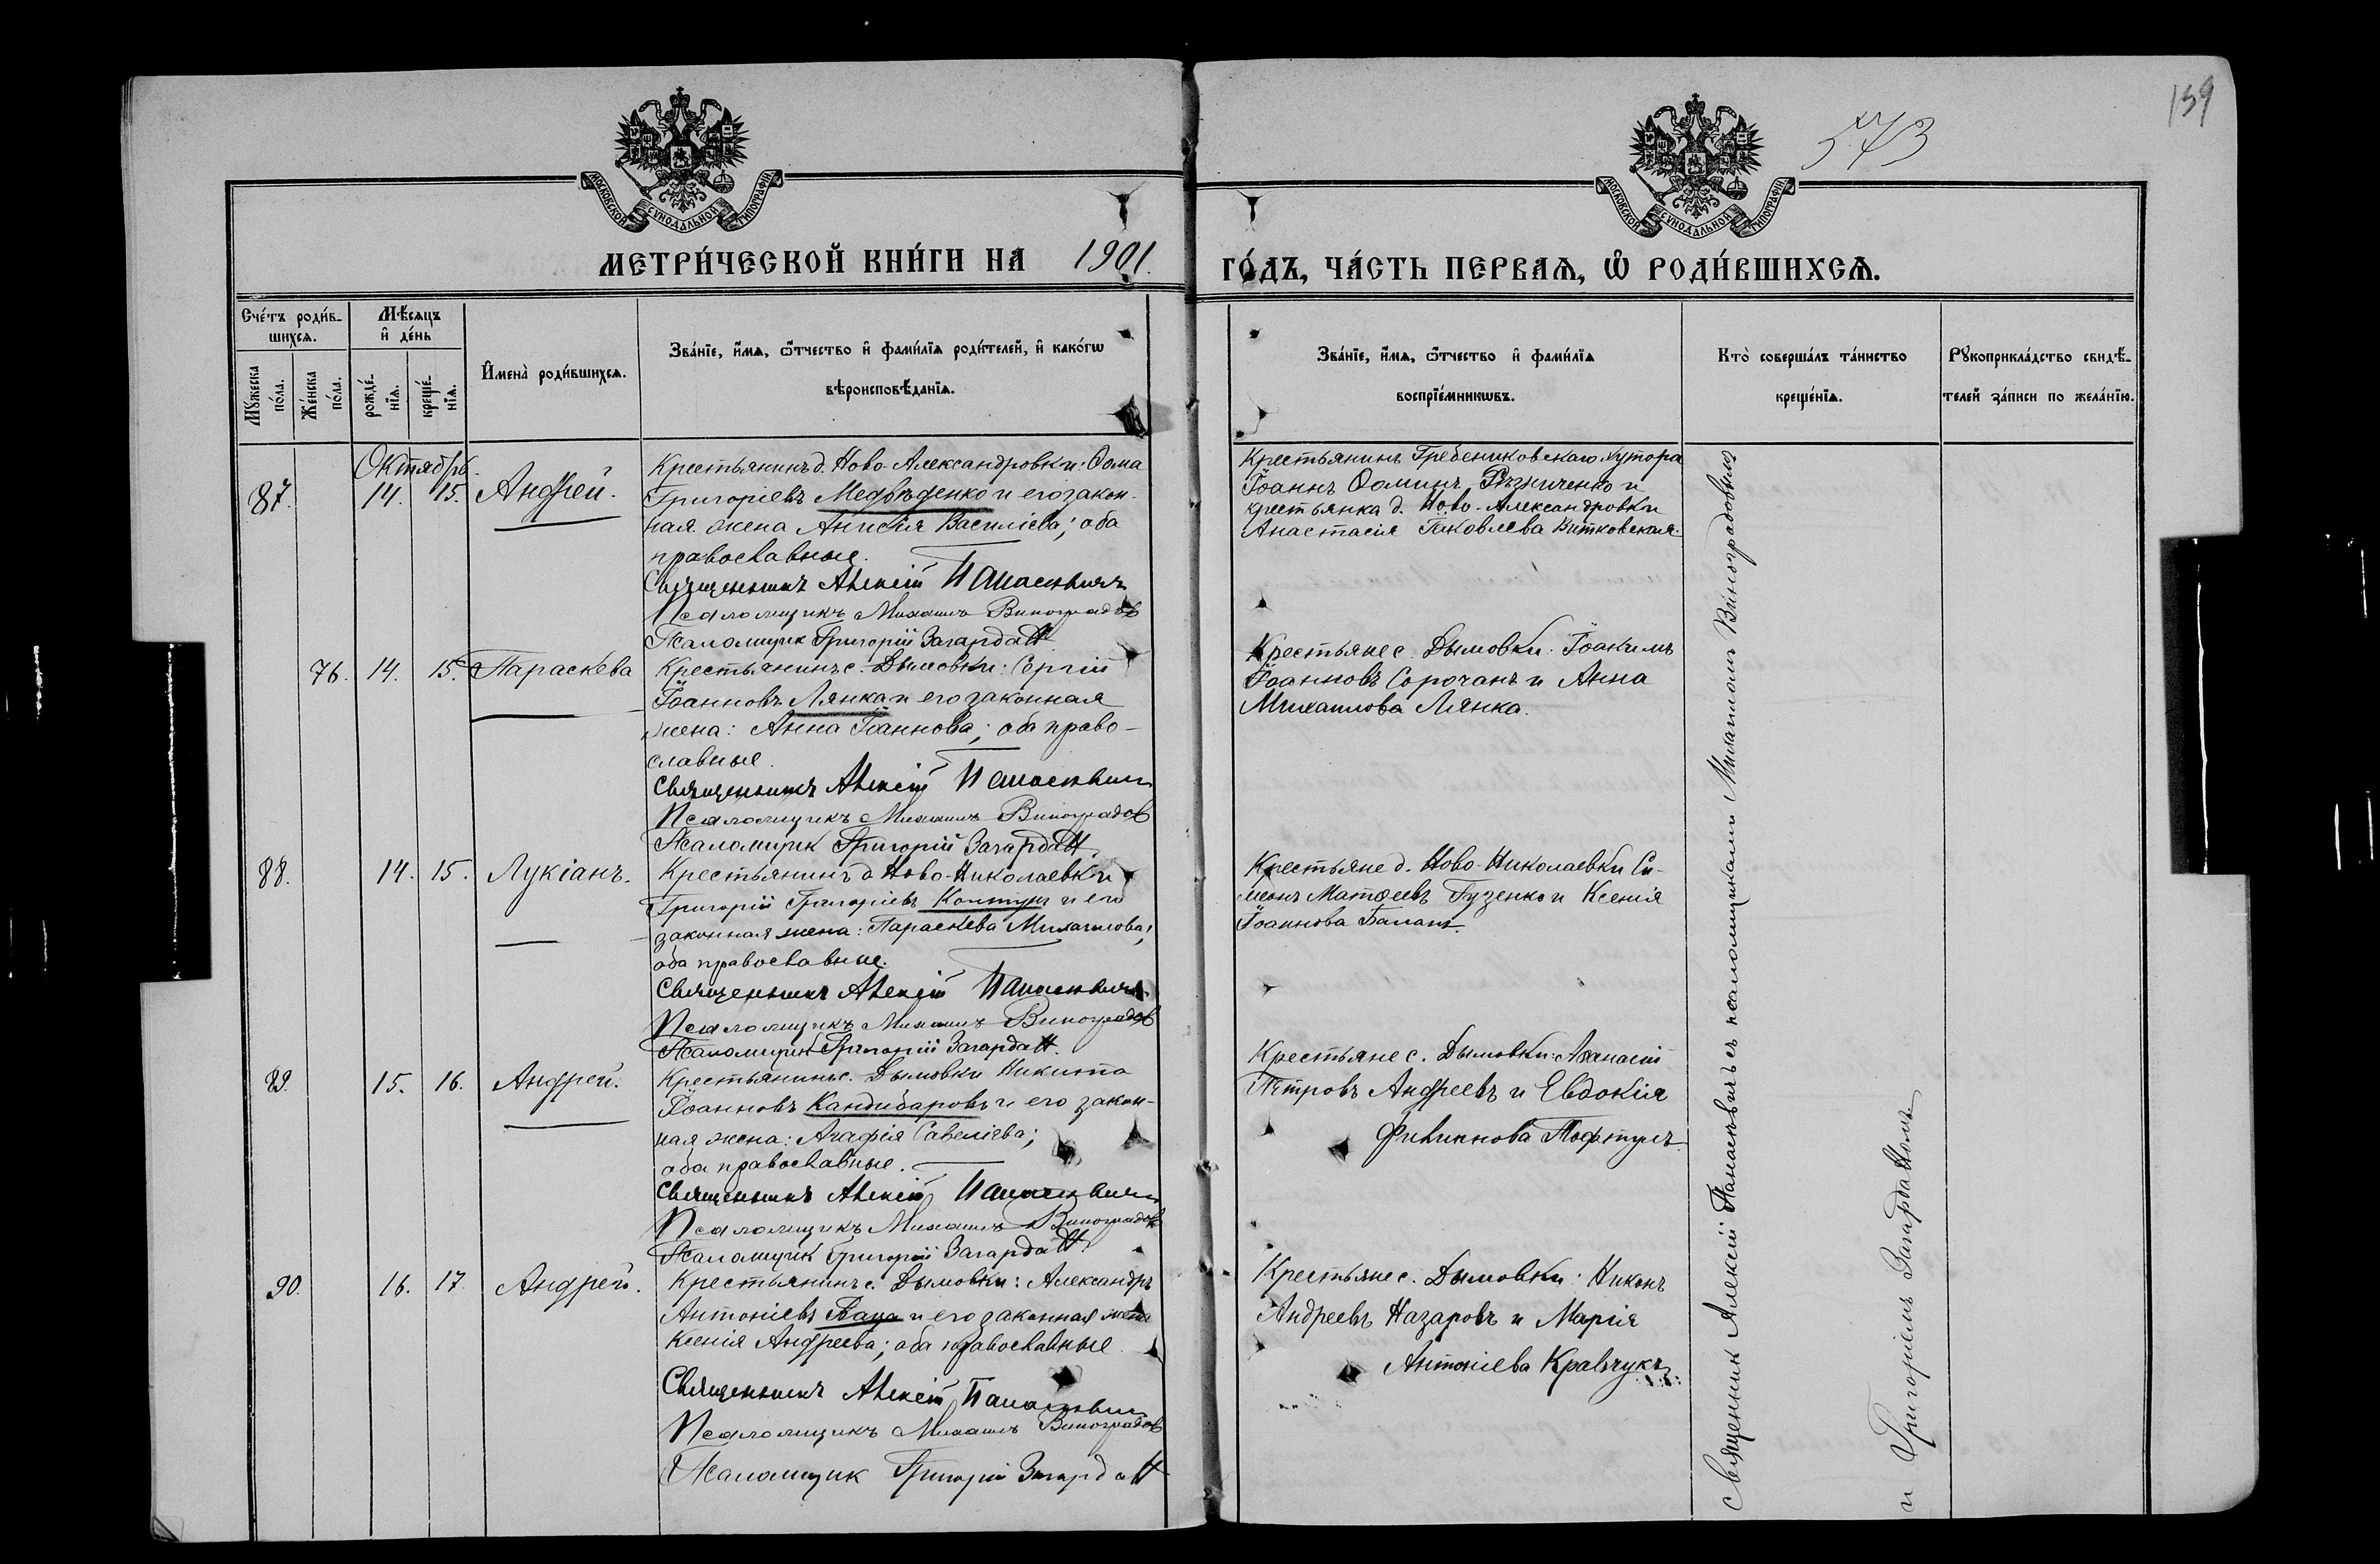 159
573
МОСКОВСКОЙ СѴНОДАЛЬНОЙ ТИПОГРАФІИ
МОСКОВСКОЙ СѴНОДАЛЬНОЙ ТИПОГРАФІИ
МЕТРИ́ЧЕСКОЙ КНИ́ГИ НА 1901. ГО́ДЪ, ЧА́СТЬ ПЕРВАѦ, Ѽ РОДИ́ВШИХСѦ.
Сче́тъ роди́в-
шихсѧ.
Мꙋ́жеска по́ла.
Же́нска по́ла.
Мѣ́сѧцъ
и҆ де́нь
рожде́-
нїѧ.
креще́-
нїѧ.
И҆мена̀ роди́вшихсѧ.
Зва́нїе, и҆́мѧ, ѻ҆́тчество и҆ фами́лїѧ роди́телей, и҆ како́гѡ
вѣроисповѣ́данїѧ.
Зва́нїе, и҆́мѧ, ѻ҆́тчество и҆ фами́лїѧ
воспрїе́мникѡвъ.
Кто̀ соверша́лъ та́инство
креще́нїѧ.
Рꙋкоприкла́дство свидѣ́-
телей за́писи по жела́нїю.
Октябрь.
87. 14. 15. Андрей.
Крестьянинъ д. Ново-Александровки: Ѳома
Григоріевъ Медвѣденко и его закон-
ная жена Анисія Василіева; оба
православные.
Священникъ Алексій Панасевичъ
Псаломщикъ Михаилъ Виноградов
Псаломщик Григорій Загардан
Крестьянинъ Гребениковскаго хутора
Іоаннъ Ѳоминъ Рѣзниченко и
крестьянка д. Ново-Александровки
Анастасія Іаковлева Витковская.
76. 14. 15. Параскева
Крестьянинъ с. Дымовки: Сергій
Іоанновъ Лянка и его законная
жена: Анна Іоаннова; оба право-
славные.
Священникъ Алексій Панасевичъ
Псаломщикъ Михаилъ Виноградов
Псаломщик Григорій Загардан
Крестьяне с. Дымовки: Іоакимъ
Іоанновъ Сорочанъ и Анна
Михаилова Лянка.
88. 14. 15. Лукіанъ.
Крестьянинъ д. Ново-Николаевки
Григорій Григоріевъ Колтунъ и его
законная жена: Параскева Михаилова;
оба православные.
Священникъ Алексій Панасевичъ
Псаломщикъ Михаилъ Виноградов
Псаломщик Григорій Загардан.
Крестьяне д. Ново-Николаевки Си-
меонъ Матѳеевъ Гузенко и Ксенія
Іоаннова
89. 15. 16. Андрей.
Крестьянинъ с. Дымовки Никита
Іоанновъ Кандибаровъ и его закон-
ная жена: Агафія Савеліева;
оба православные.
Священникъ Алексій Панасевичъ
Псаломщикъ Михаилъ Виноградов
Псаломщик Григорій Загардан
Крестьяне с. Дымовки: Аѳанасій
Петровъ Андреевъ и Евдокія
Филиппова
90. 16. 17. Андрей.
Крестьянинъ с. Дымовки: Александръ
Антоніевъ и его законная жена
Ксенія Андреева; оба православные.
Священникъ Алексій Панасевичъ
Псаломщикъ Михаилъ Виноградов
Псаломщик Григорій Загардан
Крестьяне с. Дымовки: Никонъ
Андреевъ Назаровъ и Марія
Антоніева Кравчукъ
Священник Алексій Панасевичъ съ псаломщиками Михаиломъ Виноградовымъ
и Григоріемъ Загарданомъ